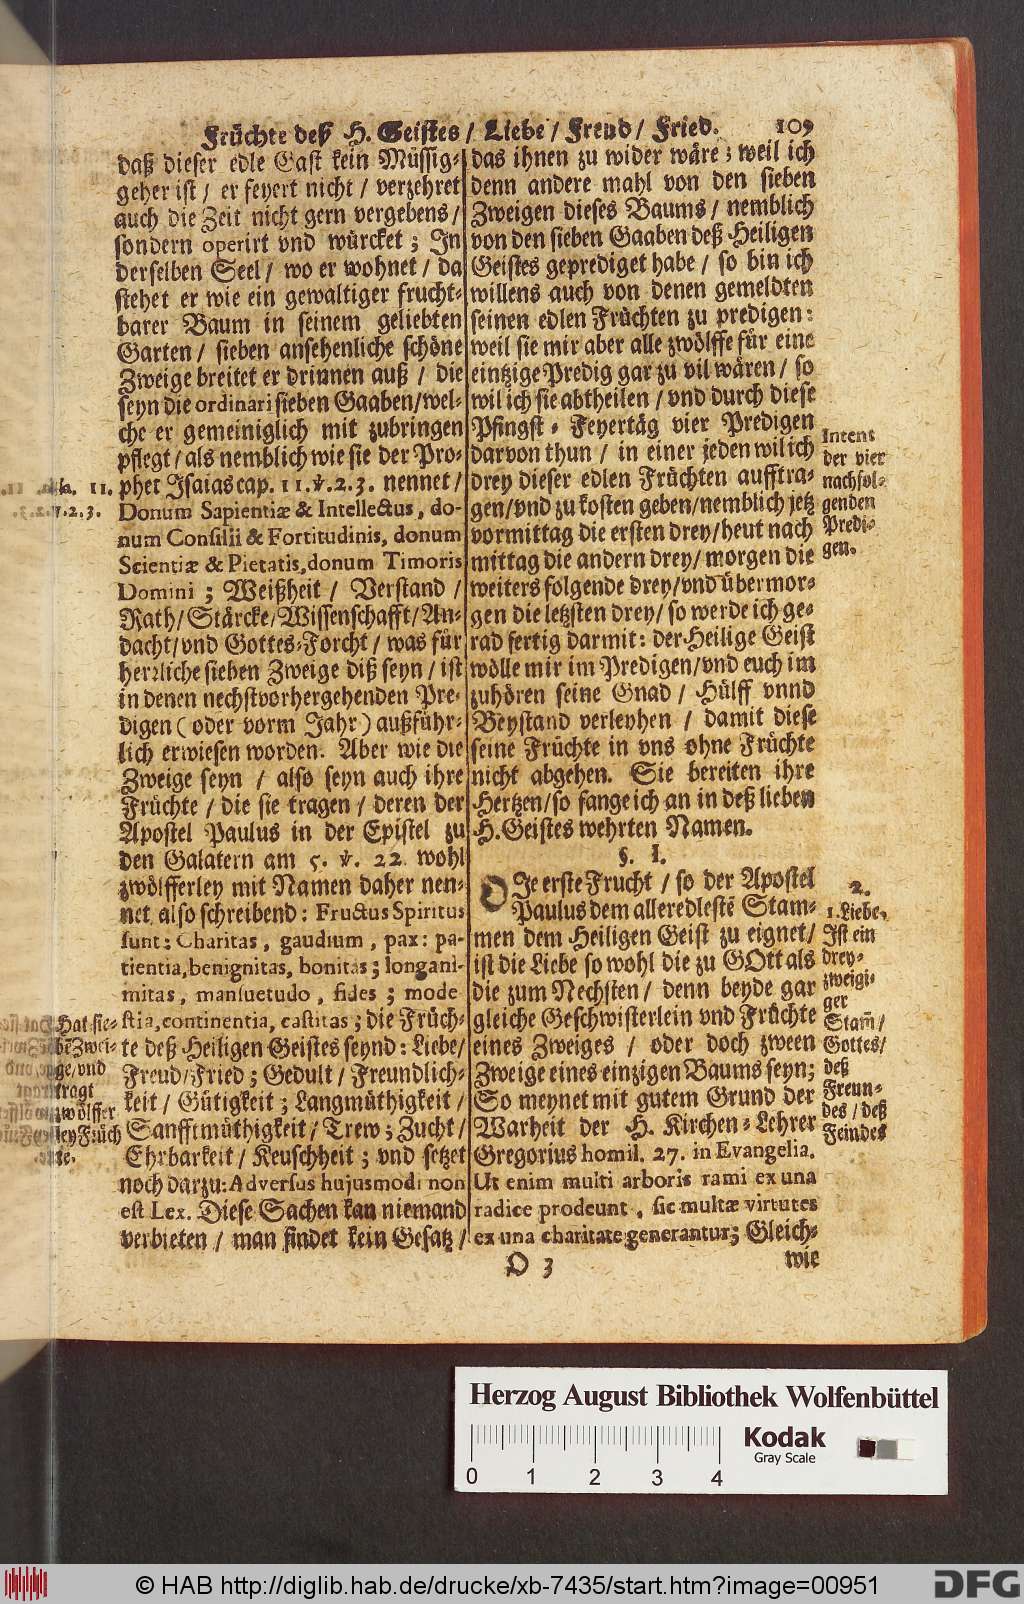 Früchte deß H. Geistes / Liebe / Freud / Fried. 109
daß dieser edle Gast kein Müssig-
geher ist / er feyert nicht / verzehret
auch die Zeit nicht gern vergebens /
sondern operirt vnd würcket ; In
derselben Seel / wo er wohnet / da
stehet er wie ein gewaltiger frucht-
barer Baum in seinem geliebten
Garten / sieben ansehenliche schöne
Zweige breitet er drinnen auß / die
seyn die ordinari sieben Gaaben / wel-
che er gemeiniglich mit zubringen
pflegt / als nemblich wie sie der Pro-
phet Isaias cap. 11. ℣. 2. 3. nennet /
Donum Sapientiæ & Intellectus, do-
num Consilii & Fortitudinis, donum
Scientiæ & Pietatis, donum Timoris
Domini ; Weißheit / Verstand /
Rath / Stärcke / Wissenschafft / An-
dacht / vnd Gottes-Forcht / was für
herrliche sieben Zweige diß seyn / ist
in denen nechstvorhergehenden Pre-
digen ( oder vorm Jahr ) außführ-
lich erwiesen worden. Aber wie die
Zweige seyn / also seyn auch ihre
Früchte / die sie tragen / deren der
Apostel Paulus in der Epistel zu
den Galatern am 5. ℣. 22. wohl
zwölfferley mit Namen daher nen-
net, also schreibend : Fructus Spiritus
sunt : Charitas, gaudium, pax : pa-
tientia, benignitas, bonitas ; longani-
mitas, mansuetudo, fides ; mode
stia, continentia, castitas ; die Früch-
te deß Heiligen Geistes seynd : Liebe /
Freud / Fried ; Gedult / Freundlich-
keit / Gütigkeit ; Langmüthigkeit /
Sanfftmüthigkeit / Trew ; Zucht /
Ehrbarkeit / Keuschheit ; vnd setzet
noch darzu : Adversus hujusmodi non
est Lex. Diese Sachen kan niemand
verbieten / man findet kein Gesatz /
Isa. 11.
℣. 2. 3.
Hat sie-
be Zwei-
ge / vnd
tragt
zwölffer
ley Früch
te.
das ihnen zu wider wäre ; weil ich
denn andere mahl von den sieben
Zweigen dieses Baums / nemblich
von den sieben Gaaben deß Heiligen
Geistes geprediget habe / so bin ich
willens auch von denen gemeldten
seinen edlen Früchten zu predigen :
weil sie mir aber alle zwölffe für eine
eintzige Predig gar zu vil wären / so
wil ich sie abtheilen / vnd durch diese
Pfingst-Feyertäg vier Predigen
darvon thun / in einer jeden wil ich
drey dieser edlen Früchten aufftra-
gen / vnd zu kosten geben / nemblich jetz
vormittag die ersten drey / heut nach
mittag die andern drey / morgen die
weiters folgende drey / vnd übermor-
gen die letzsten drey / so werde ich ge-
rad fertig darmit : der Heilige Geist
wölle mir im Predigen / vnd euch im
zuhören seine Gnad / Hülff vnnd
Beystand verleyhen / damit diese
seine Früchte in vns ohne Früchte
nicht abgehen. Sie bereiten ihre
Hertzen / so fange ich an in deß lieben
H. Geistes wehrten Namen.
§. I.
DIe erste Frucht / so der Apostel
Paulus dem alleredlestē Stam-
men dem Heiligen Geist zu eignet /
ist die Liebe so wohl die zu GOtt als
die zum Nechsten / denn beyde gar
gleiche Geschwisterlein vnd Früchte
eines Zweiges / oder doch zween
Zweige eines einzigen Baums seyn ;
So meynet mit gutem Grund der
Warheit der H. Kirchen-Lehrer
Gregorius homil. 27. in Evangelia.
Ut enim multi arboris rami ex una
radice prodeunt, sic multæ virtutes
ex una charitate generantur ; Gleich-
Intent
der vier
nachfol-
genden
Predi-
gen.
2.
1. Liebe,
Ist ein
drey-
zweigi-
ger
Stam̃ /
Gottes /
deß
Freun-
des / deß
Feindes
O 3 wie
Herzog August Bibliothek Wolfenbüttel
Kodak
Gray Scale
0 1 2 3 4
© HAB http://diglib.hab.de/drucke/xb-7435/start.htm?image=00951
DFG